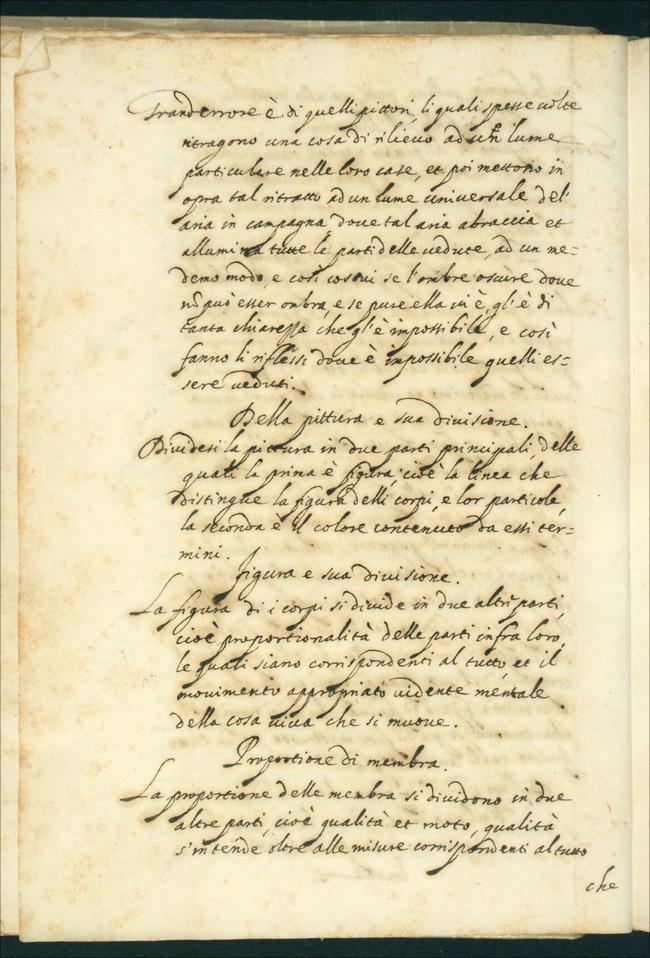 Grand errore è di quelli pittori, li quali spesse uolte
ritragono una cosa di rilieuo ad un lume
particulare nelle loro case, et poi mettono in
opra tal ritratto ad un lume uniuersale del'
aria in campagna doue tal aria abraccia et
allumina tutte le parti delle uedute, ad un me=
demo modo, e così costui fe l'ombre oscure doue
nō può esser ombra, e se pure ella ui è, gl'è di
tanta chiarezza che gl'è impossibile, e così
fanno li riflessi doue è impossibile quelli es=
sere ueduti.
Della pittura e sua diuisione.
Diuidesi la pittura in due parti principali, delle
quali la prima è figura, cioè la linea che
distingue la figura delli corpi, e lor particole,
la seconda è il colore contenuto da essi ter=
mini.
figura e sua diuisione.
La figura di i corpi si diuide in due altri parti,
cioè proportionalità delle parti infra loro,
le quali siano corrispondenti al tutto, et il
mouimento appropriato uidente mentale
della cosa uiua che si muoue.
Proportione di membra.
La proportione delle membra si diuidono in due
altre parti, cioè qualità et moto, qualità
s'intende oltre alle misure corrispondenti al tutto
che